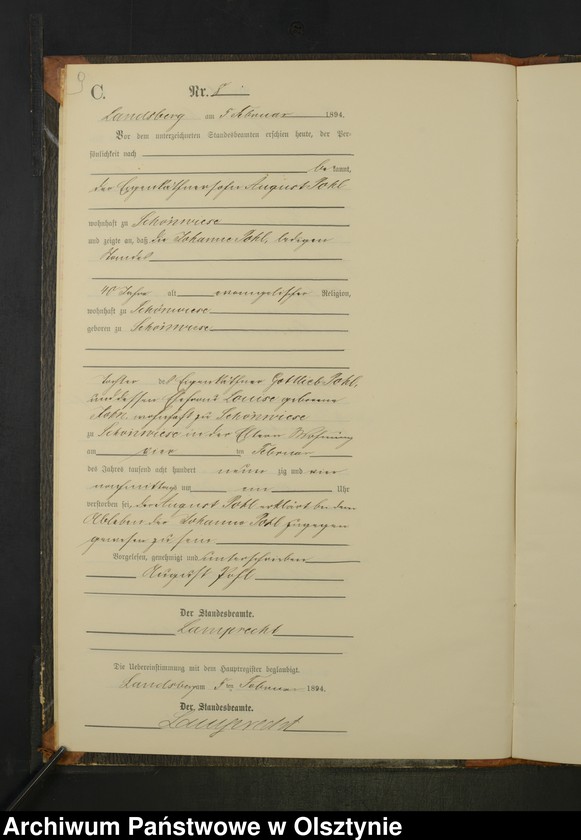 9
C.
Nr. 8
Landsberg am 5 Februar 1894.
Vor dem unterzeichneten Standesbeamten erschien heute, der Per-
sönlichkeit nach
be kannt,
der Eigenkäthnersohn August Pohl
wohnhaft zu Schönwiese
und zeigte an, daß die Johanne Pohl, ledigen
Standes
40 Jahre alt evangelischer Religion,
wohnhaft zu Schönwiese
geboren zu Schönwiese
Tochter des Eigenkäthner Gottlieb Pohl,
und dessen Ehefrau Louise geborene
wohnhaft zu Schönwiese
zu Schönwiese in der Eltern Wohnung
am vier ten Februar
des Jahres tausend acht hundert neun zig und vier
nachmittags um ein Uhr
verstorben sei, der August Pohl erklärt bei dem
Ableben der Johanne Pohl zugegen
gewesen zu sein
Vorgelesen, genehmigt und unterschrieben
August Pohl
Der Standesbeamte.
Lamprecht
Die Uebereinstimmung mit dem Hauptregister beglaubigt.
Landsberg am 5ten Februar 1894.
Der Standesbeamte.
Lamprecht
Archiwum Państwowe w Olsztynie